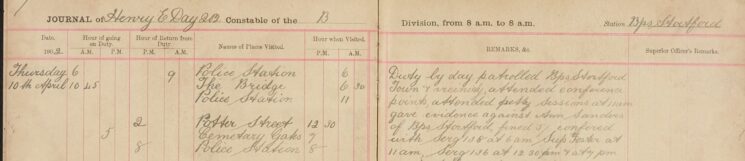 JOURNAL of Henry E Day 202 Constable of the B Division, from 8 a.m. to 8 a.m. Station Bps Stortford
Date. Hour of going on Duty. Hour of Return from Duty. Names of Places Visited. Hour when Visited. REMARKS, &c. Superior Officer's Remarks.
190 A.M. P.M. A.M. P.M. P.M. A.M.
Thursday 6 9 Police Station 6 Duty by day patrolled Bps Stortford
10th April 10 45 The Bridge 6 30 Town & vicinity, attended conference
Police Station 11 point, attended petty sessions at 11 am
gave evidence against Ann Sanders
2 Potter Street 12 30 of Bps Stortford, fined 5/, confered
5 Cemetary Gates 7 with Serg 136 at 6 am, Supt Foster at
8 Police Station 8 11 am, Serg 136 at 12 30 pm & 7 pm